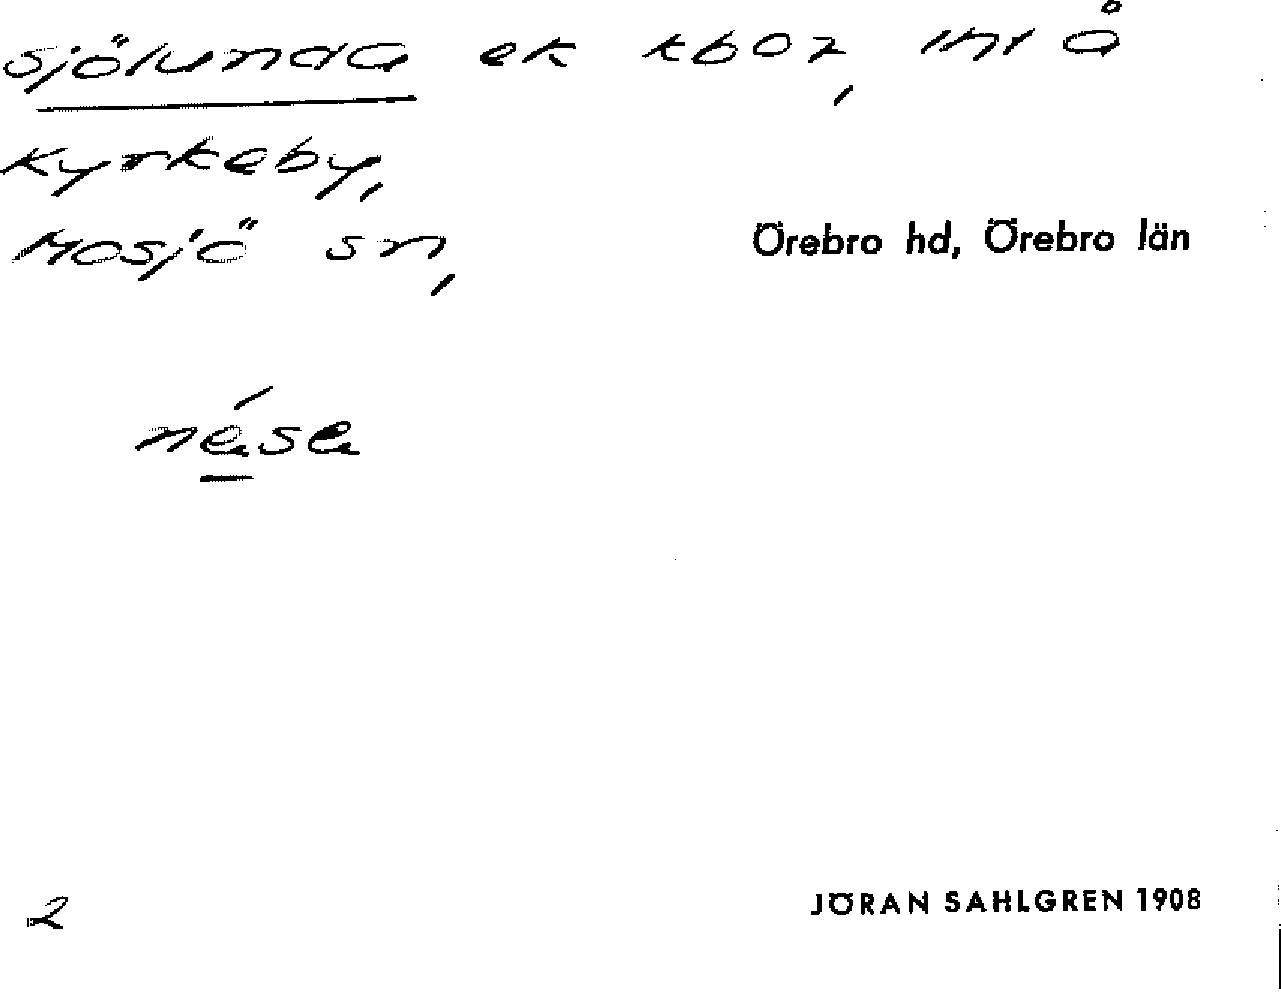 Sjölunda ek tb02, inl å
Kyrkeby,
Mosjö sn, Örebro hd, Örebro län
2 JÖRAN SAHLGREN 1908